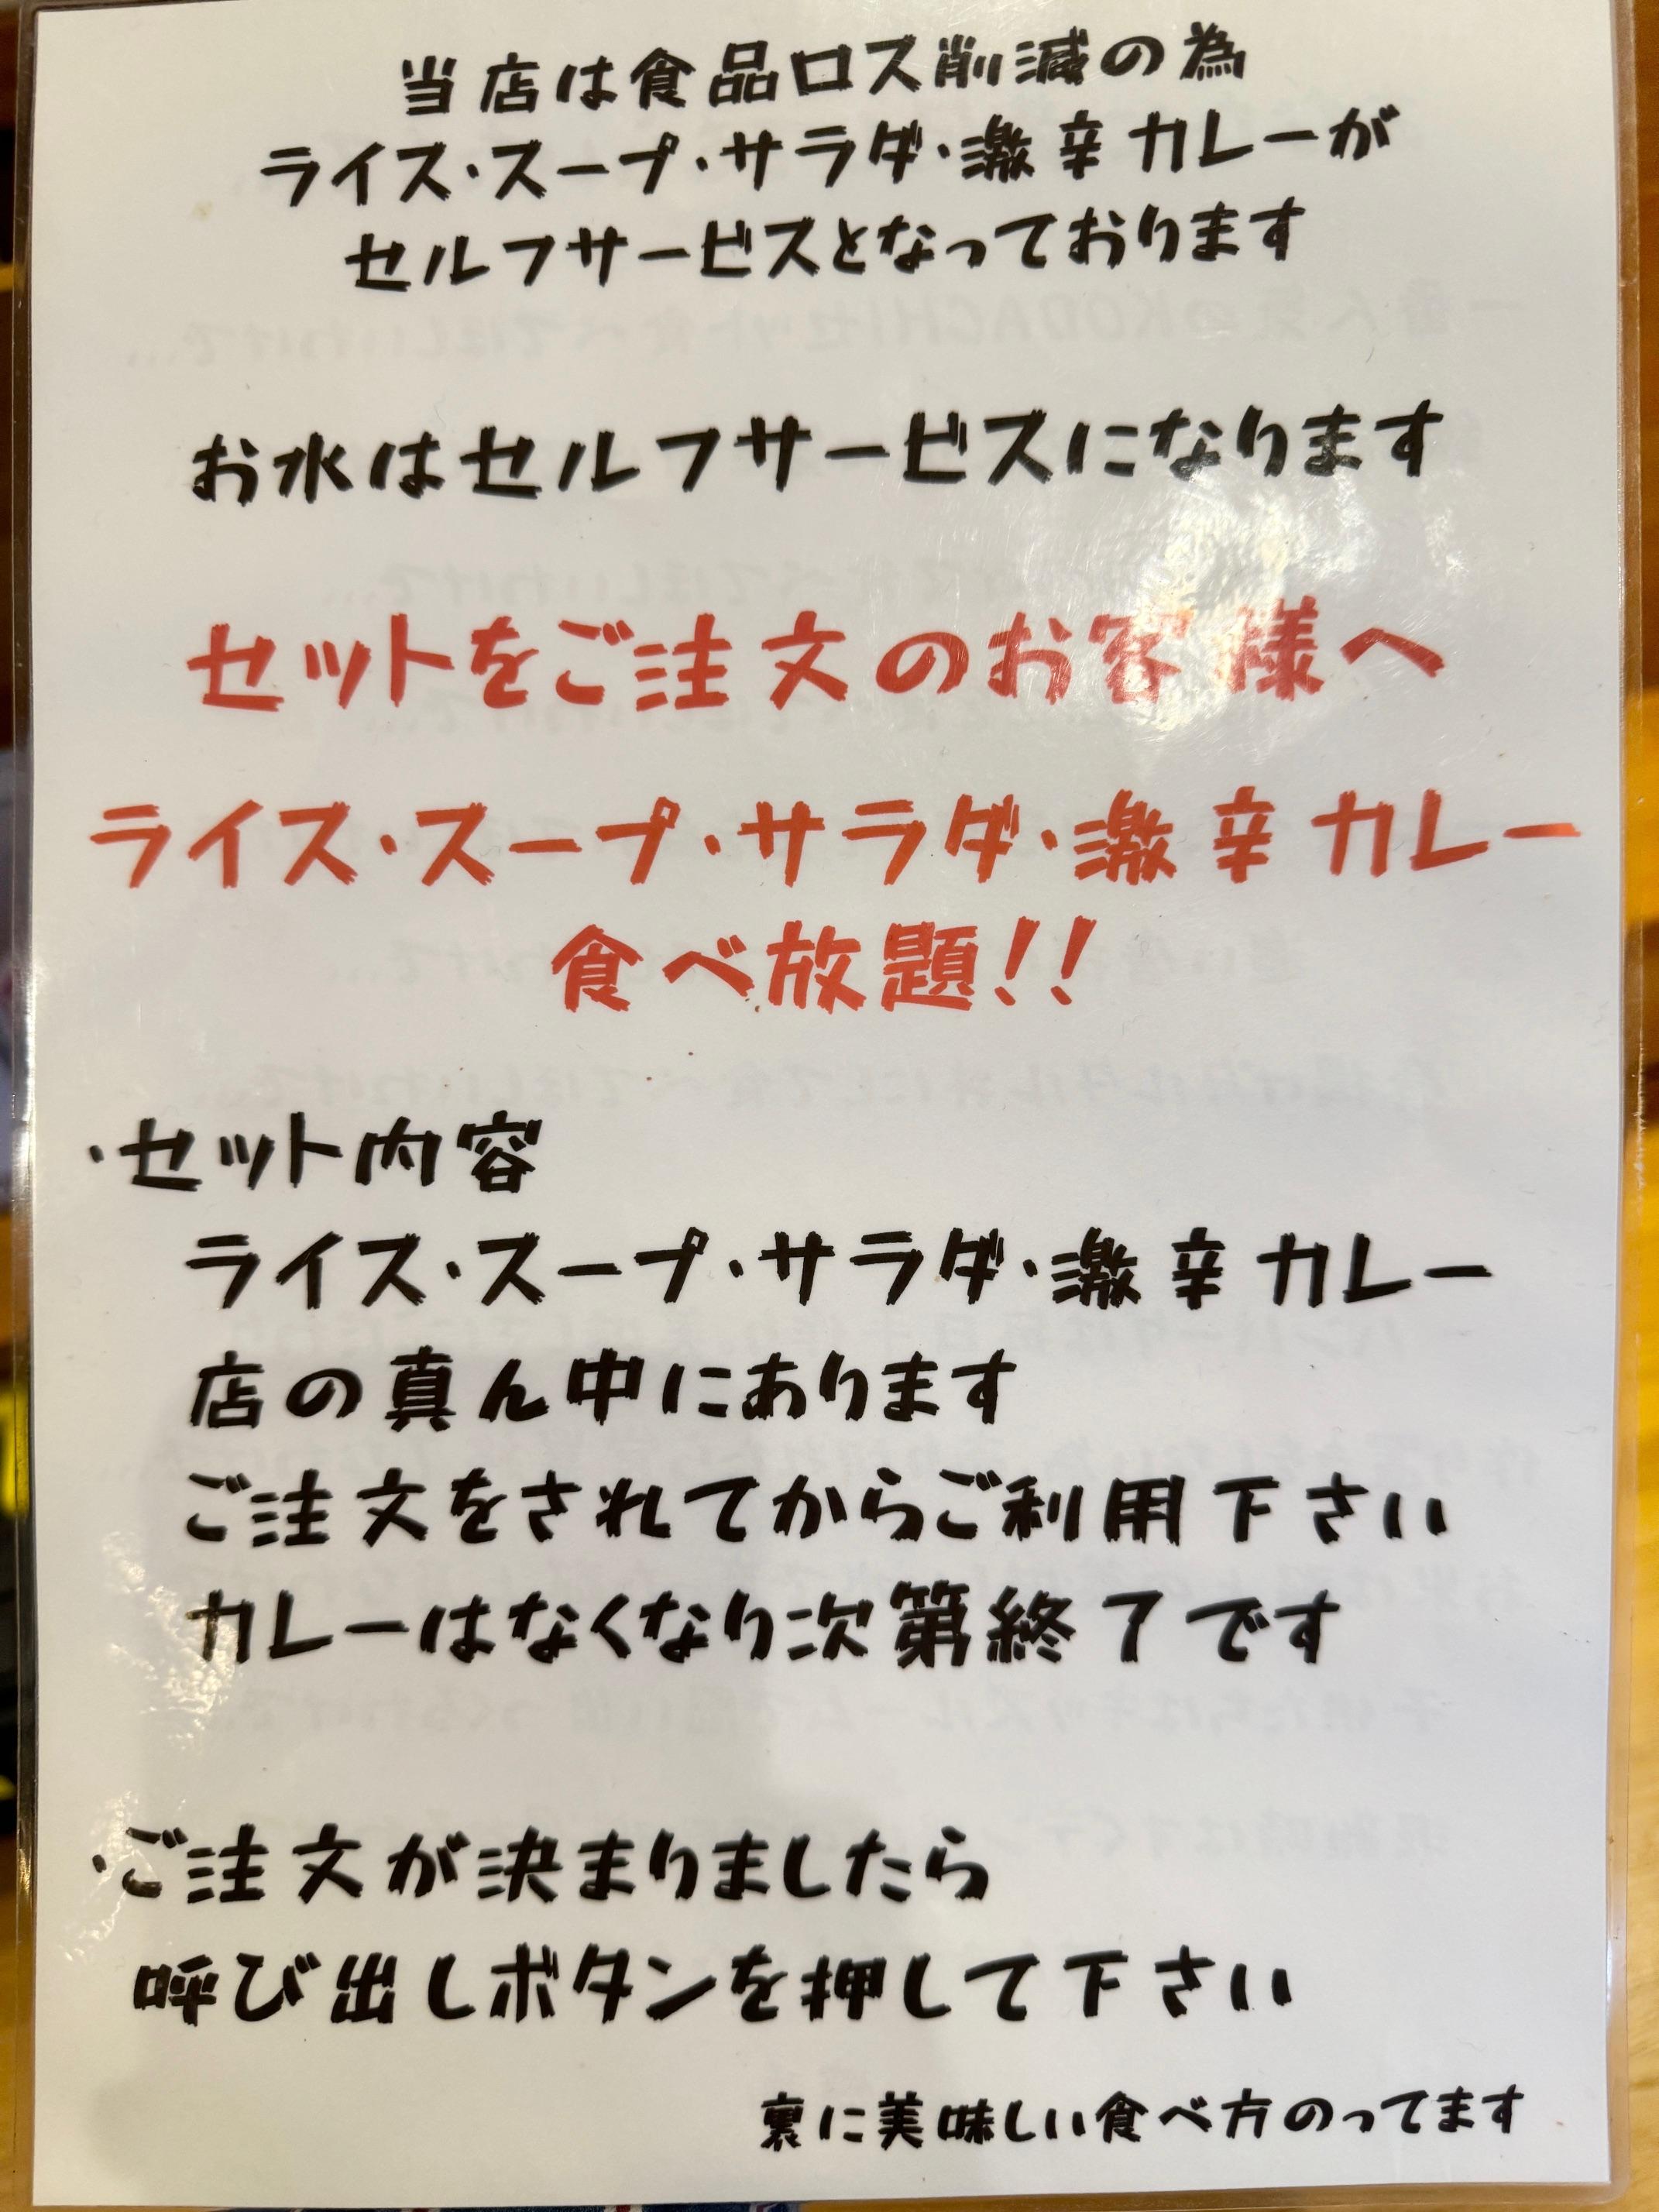 当店は食品ロス削減の為
ライス・スープ・サラダ・激辛カレーが
セルフサービスとなっております
お水はセルフサービスになります
セットをご注文のお客様へ
ライス・スープ・サラダ・激辛カレー
食べ放題!!
・セット内容
ライス・スープ・サラダ・激辛カレー
店の真ん中にあります
ご注文をされてからご利用下さい
カレーはなくなり次第終了です
・ご注文が決まりましたら
呼び出しボタンを押して下さい
裏に美味しい食べ方のってます